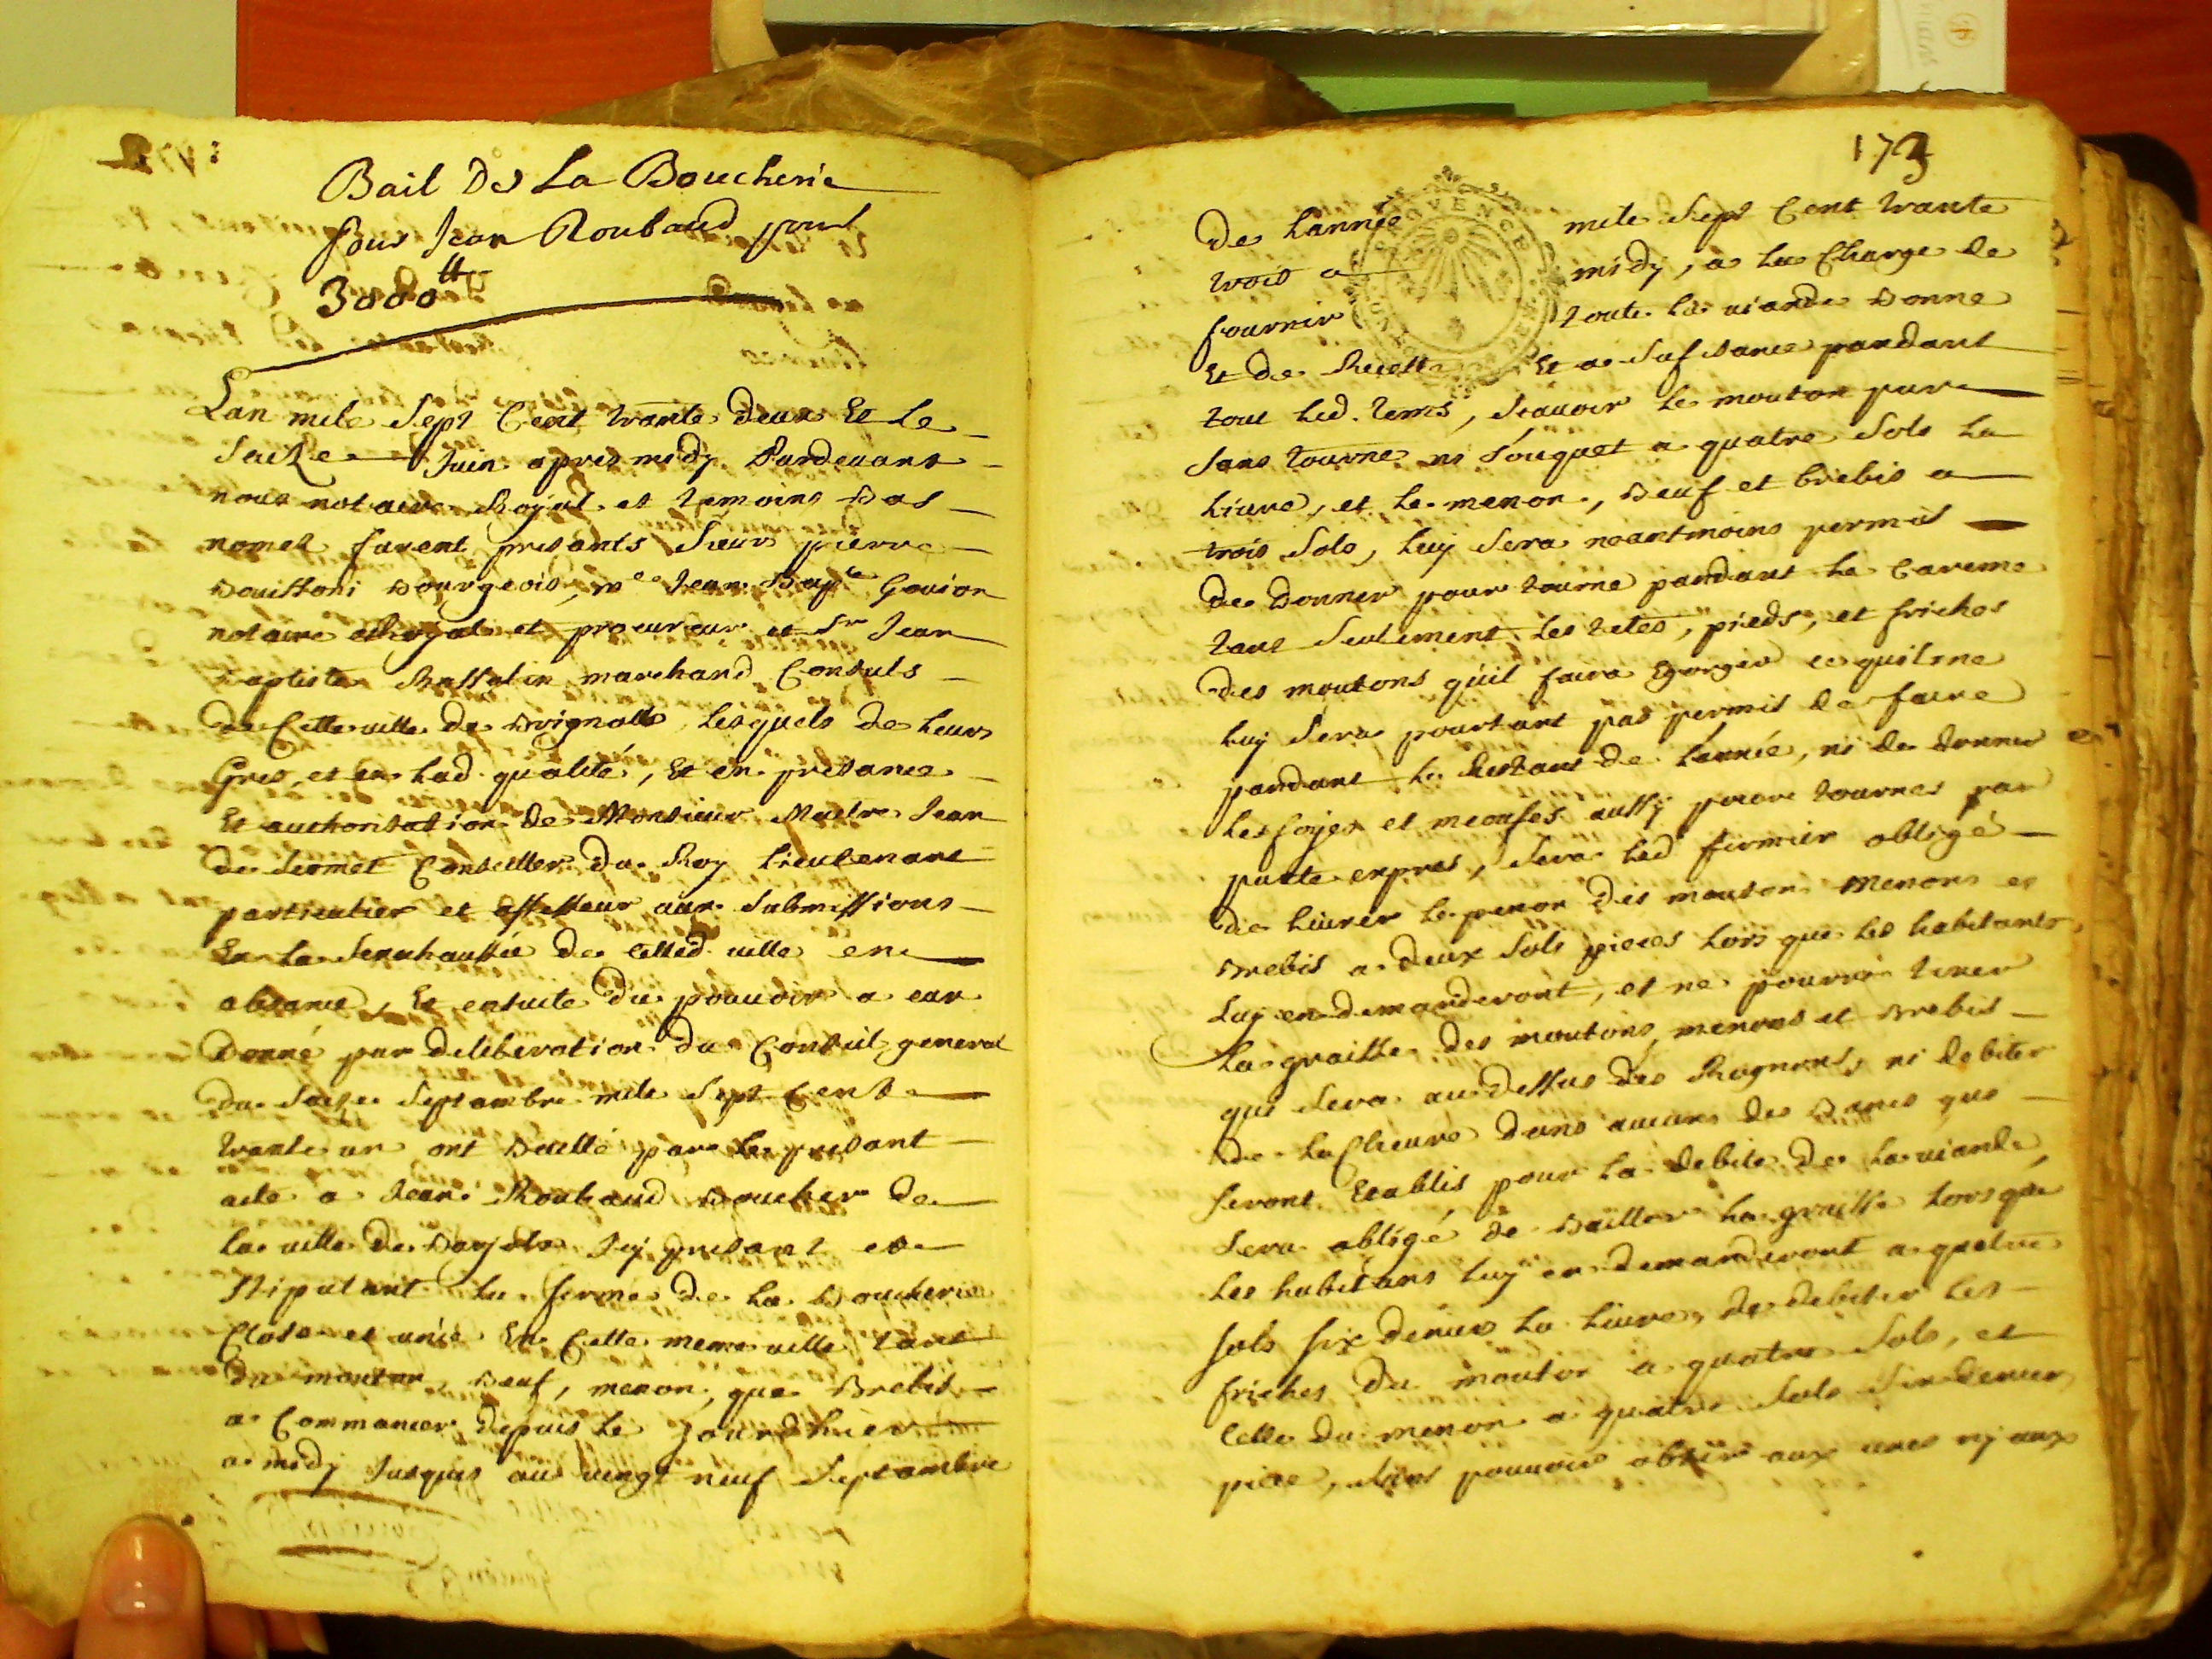 Bail De La Boucherie
pour Jean Roubaud pour
3000tt
Lan mile Sept Cent trante deux Et le
Saize Juin apres midy Pardevant
nous notaire Royal et temoins bas
nomes furent presants Sieur pierre
bourgeois, me Jean Bapte Gouion
notaire Royal et procureur et Sr Jean
baptiste marchand Consuls
de Cette ville de brignolle lesquels de leurs
Gres, et en lad. qualité, Et en presance
Et authorisation de Monsieur Maitre Jean
de Conseiller du Roy Lieutenant
particulier et assesseur aux Submissions
En la Senechaussée de Cetted. ville en
absance, Et ensuite du pouvoir a eux
donné par deliberation du Conseil general
du Saize Septambre mile Sept Cent
trante un ont baillé par le presant
acte a Jean Roubaud boucher de
la ville de barjols Icy presant et
Stipulant la ferme de la boucherie
Close et unie En Cette meme ville tant
du mouton, beuf, menon, que brebis
a Commancer depuis le Jourdhuer
a midy Jusques au vingt neuf Septambre
173
de Lannée mile Sept Cent trante
trois a midy, a la Charge de
fournir toute la viande bonne
Et de Recette Et a Sufisance pandant
tout led. tems, Scavoir le mouton pur
Sans tourne ni Souquet a quatre Sols la
Livre, et le menon, beuf et brebis a
trois Sols, luy Sera neantmoins permis
de donner pour tourne pandant le Careme
tant Seulement les tetes, pieds, et friches
des moutons qu'il faira Egorger ce quil ne
luy Sera pourtant pas permis de faire
pandant le Restant de L'année, ni de donner
Les foyes et meouses aussy pour tournes par
pacte expres, Sera led fermier obligé
de Livrer le des moutons menons et
brebis a deux Sols pieces lors que les habitants
Luy en demanderont, et ne pourra tirer
La graisse des moutons, menons et brebis
que Sera au dessus des Rognons, ni debiter
de la Chevre dans aucuns des bancs que
Seront Etablis pour la debite de la viande,
Sera obligé de bailler la graisse lors que
les habitans luy en demanderont a quatre
sols six deniers la Livre, de debiter les
friches du mouton a quatre Sols, et
Celle du menon a quatre Sols Six deniers
piece, Sans pouvoir aux unes ny aux